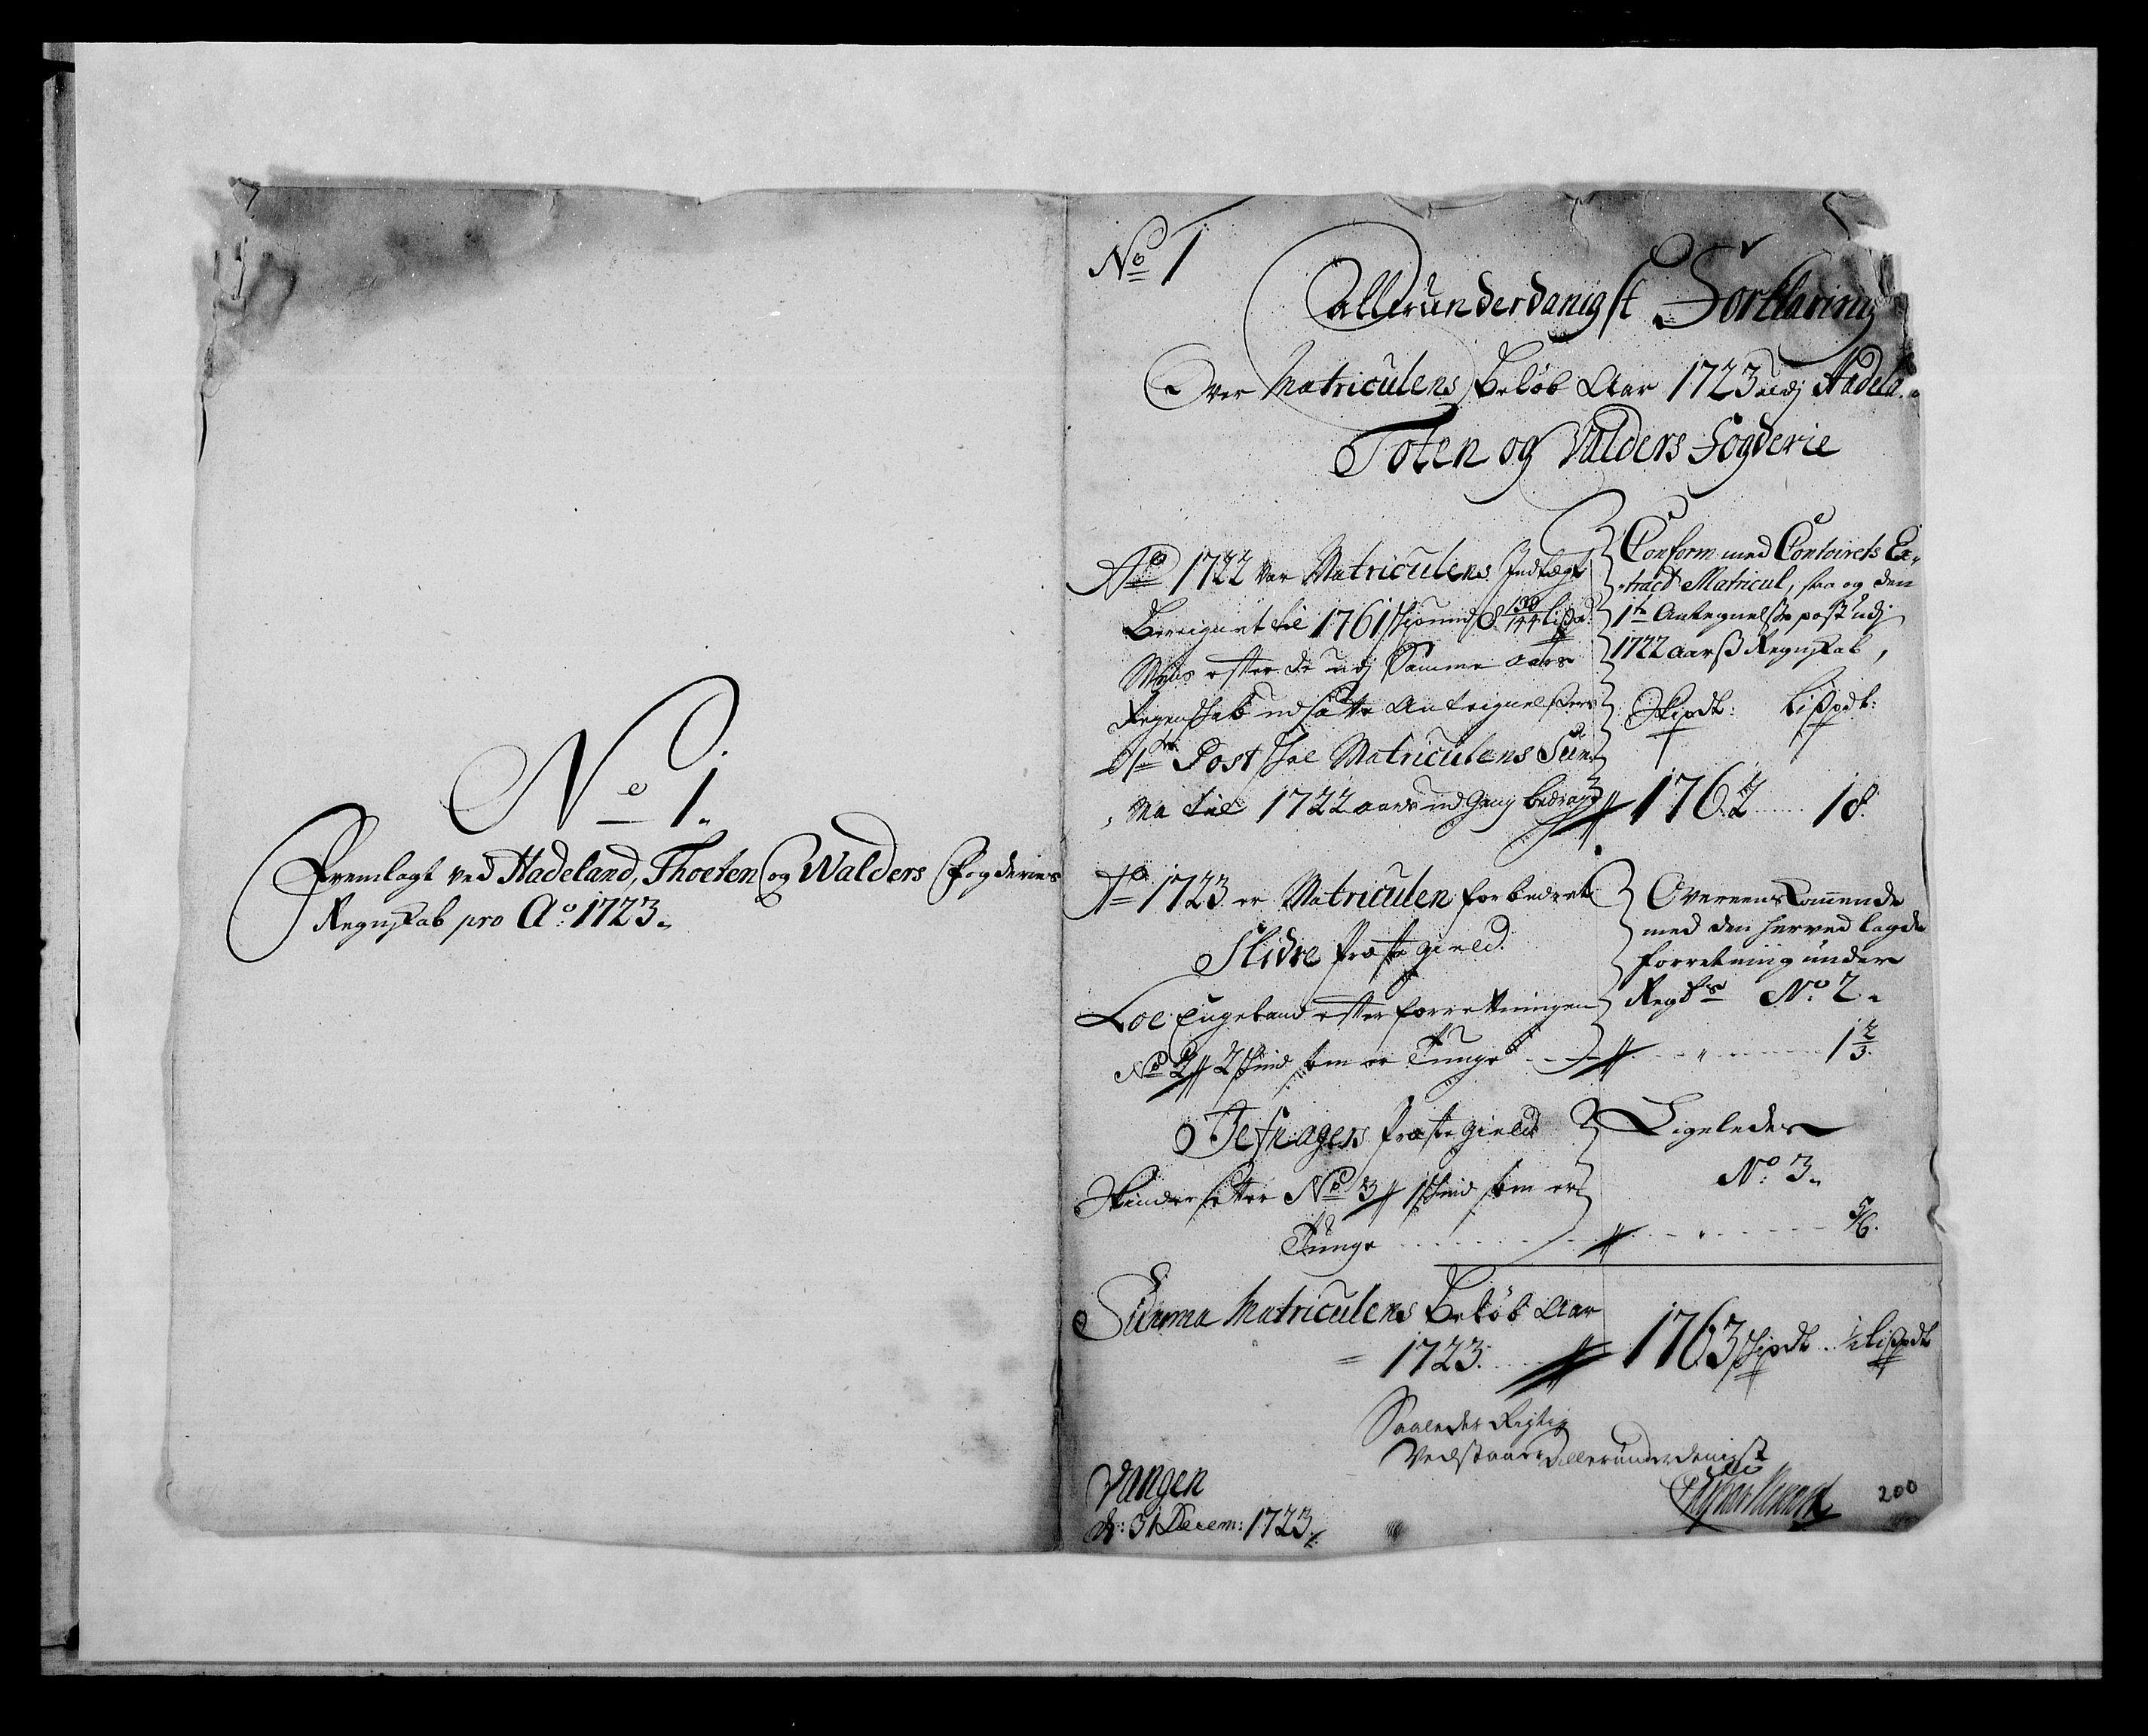 No 1.
Fremlagt ved Hadeland, Thoeten og Walders Fogderies
Regnskab pro Ao: 1723.
No 1
Allerunderdanigst Forklaring
Over Matriculens Beløb Aar 1723 udj Hadeld:
Toten og Valders Fogderie
Ao 1722 var Matriculens Indtægt
Beregnet til 1761 skipund 8 130/144 lispd.
Mens efter de udj Samme aars
Regenskab udsatte Antegnelsers
1te Post skal Matriculens Sum¬
ma til 1722 aars udgang bedrage
Conform med Contoirets Ex¬
tract Matricul, saa og den
1te Antegnelse post udj
1722 aarß Regnskab,
Skipdt: Lißpdt:
1762 18.
Ao 1723 er Matriculen forbedret
Slidre Præstegield.
Loe Engeland efter forretningen
No 2 2 skind som er Tunge
Overeens kommende
med den herved lagde
forretning under
No 2.
1 2/3.
Præstegield
efter No 3 1 skind som er
Tunge
Ligeledes
No 3.
5/6.
Summa Matriculens Beløb Aar
1723.
1763 skipdt ½ lißpdt
Saaledes Rigtig
Vedstaar allerunderdanigst
Vangen
d: 31 Decem: 1723.
200